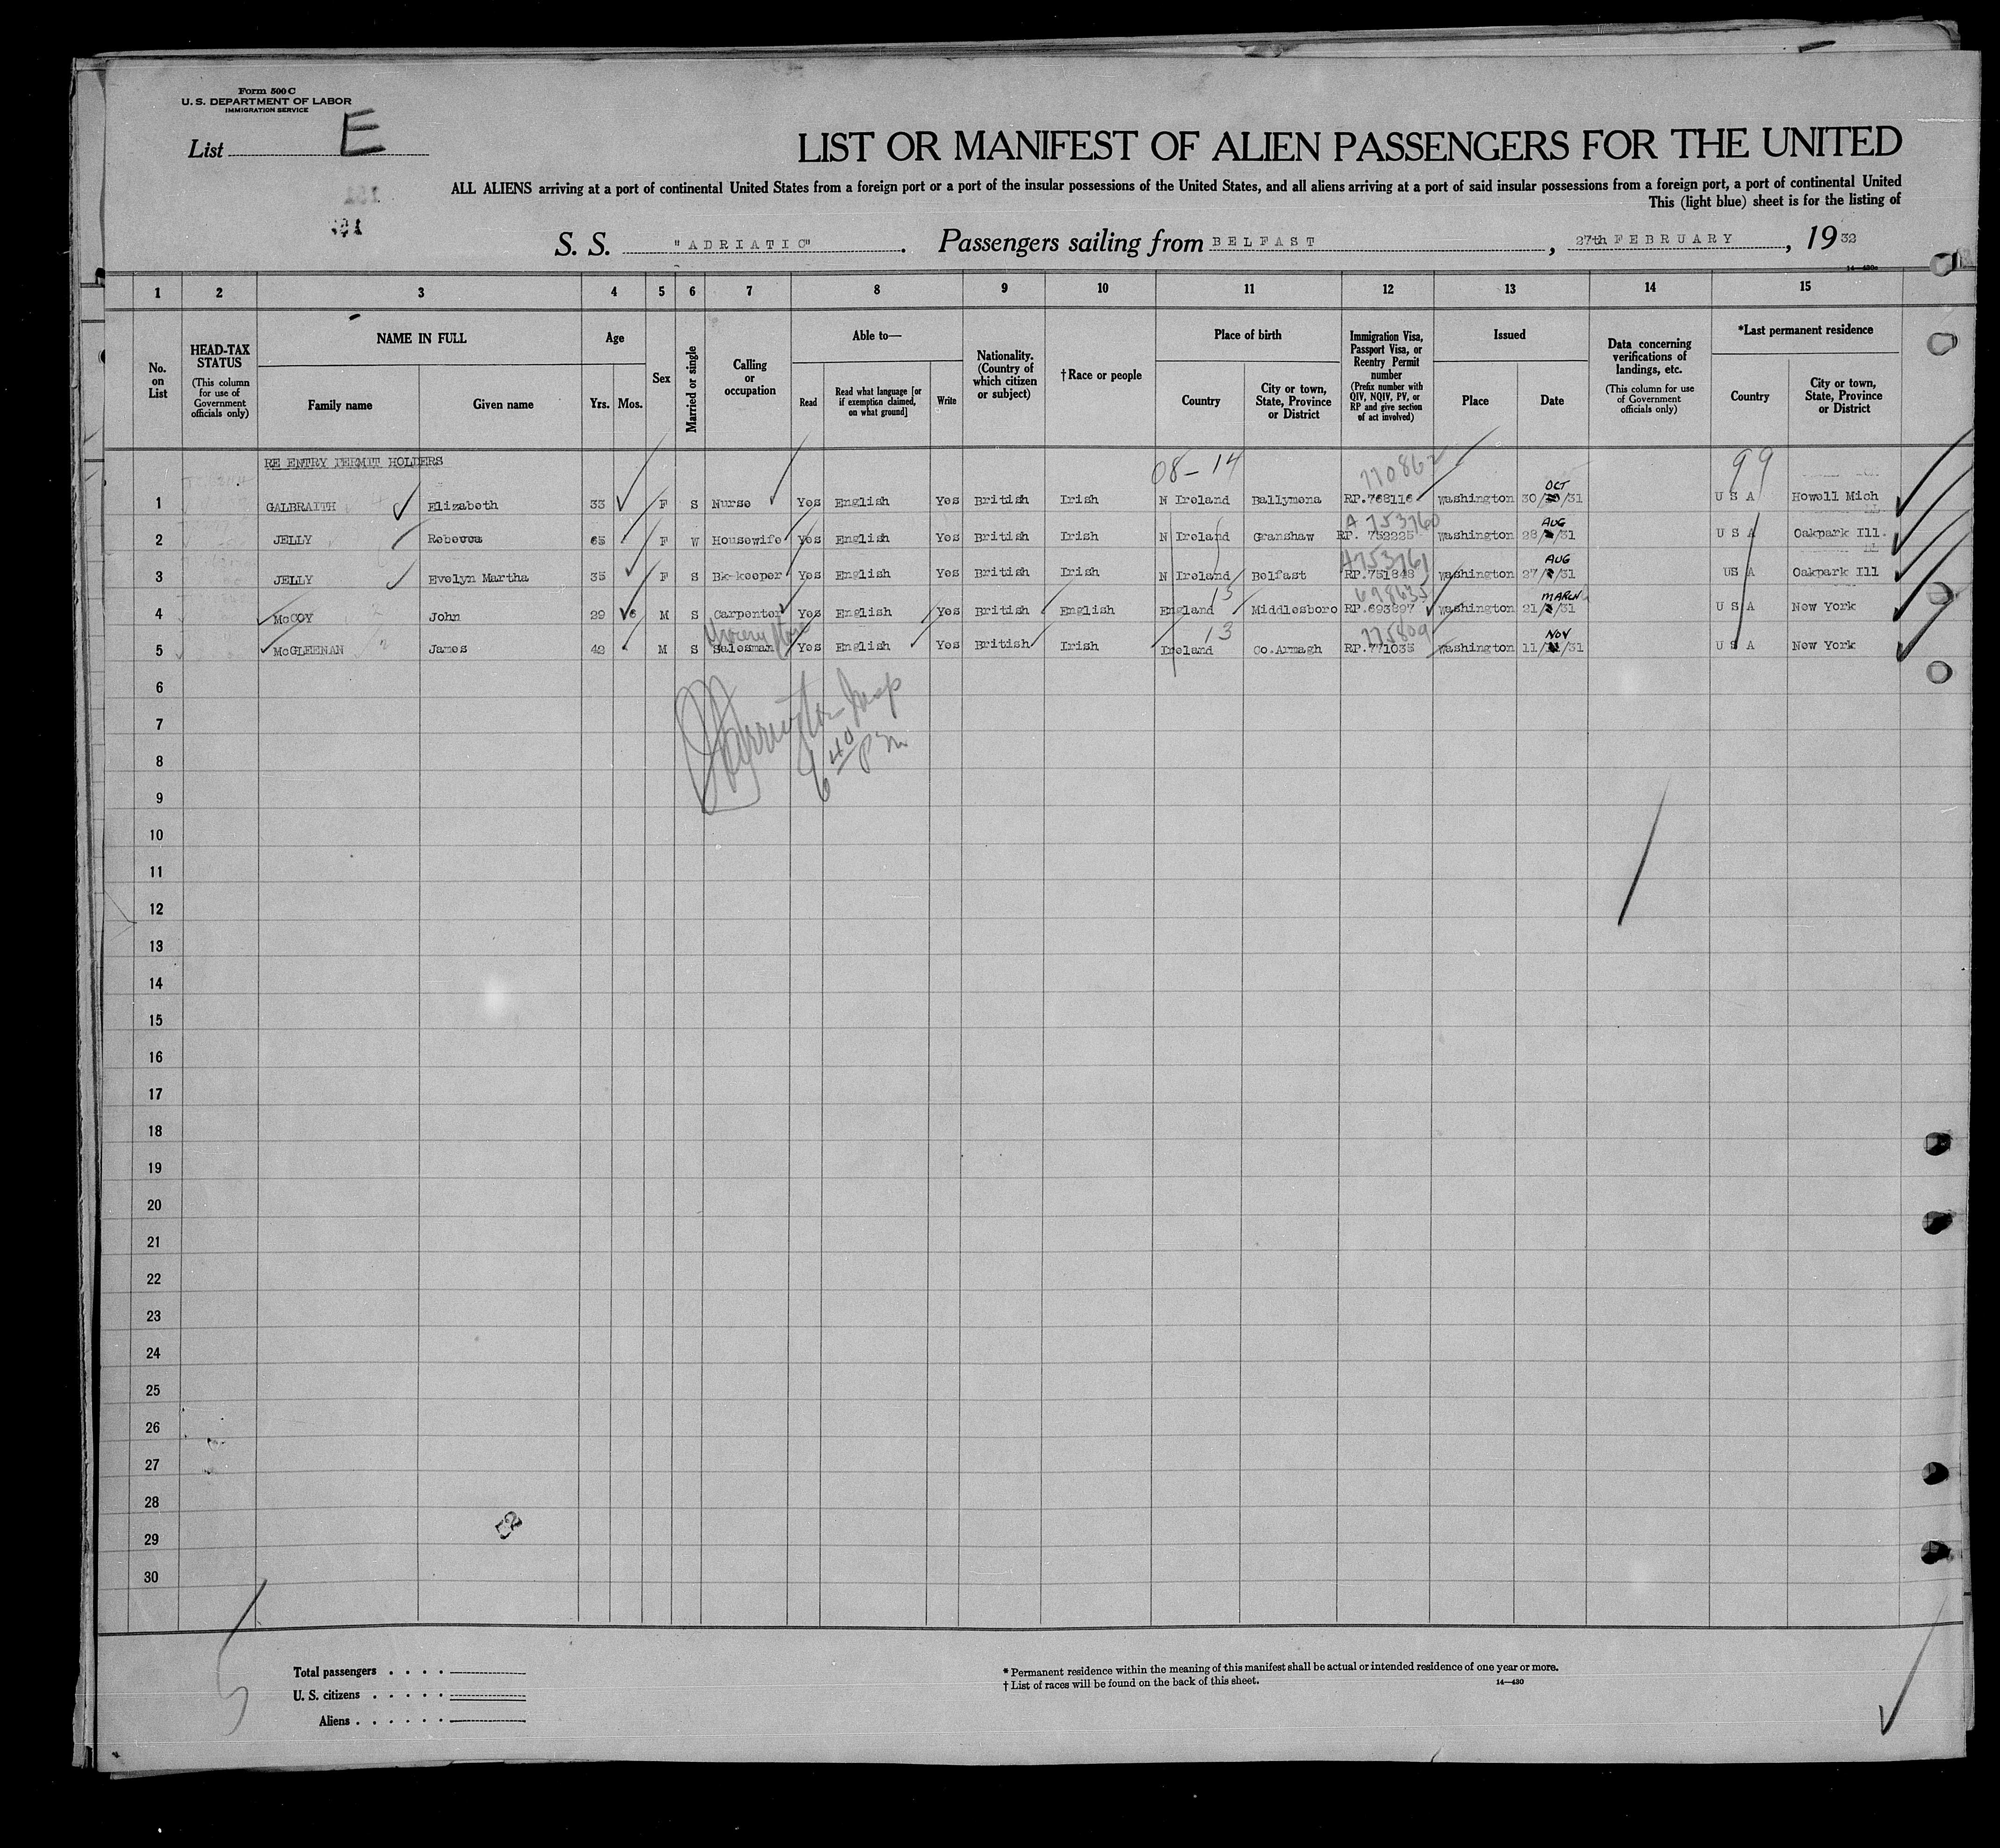 Form 500 C
U. S. DEPARTMENT OF LABOR
IMMIGRATION SERVICE
List E
LIST OR MANIFEST OF ALIEN PASSENGERS FOR THE UNITED
ALL ALIENS arriving at a port of continental United States from a foreign port or a port of the insular possessions of the United States, and all aliens arriving at a port of said insular possessions from a foreign port, a port of continental United
This (light blue) sheet is for the listing of
S. S. "ADRIATIC". Passengers sailing from BELFAST, 27th FEBRUARY, 1932
14—430
1 2 3 4 5 6 7 8 9 10 11 12 13 14 15
No. on List
HEAD-TAX STATUS (This column for use of Government officials only)
NAME IN FULL
Family name
Given name
Age
Yrs. Mos.
Sex
Married or single
Calling or occupation
Able to—
Read
Read what language [or if exemption claimed, on what ground]
Write
Nationality. (Country of which citizen or subject)
†Race or people
Place of birth
Country
City or town, State, Province or District
Immigration Visa, Passport Visa, or Reentry Permit number (Prefix number with QIV, NQIV, PV, or RP and give section of act involved)
Issued
Place
Date
Data concerning verifications of landings, etc. (This column for use of Government officials only)
*Last permanent residence
Country
City or town, State, Province or District
RE ENTRY PERMIT HOLDERS
08-14 770862 99
1 GALBRAITH Elizabeth 33 F S Nurse Yes English Yes British Irish N Ireland Ballymena RP.768116 Washington 30/OCT/31 U S A Howell Mich
A 753760
2 JELLY Rebecca 65 F W Housewife Yes English Yes British Irish N Ireland Granshaw RP. 752225 Washington 28/AUG/31 U S A Oakpark Ill.
A753761
3 JELLY Evelyn Martha 35 F S Bk-keeper Yes English Yes British Irish N Ireland Belfast RP.751848 Washington 27/AUG/31 US A Oakpark Ill
13 698635
4 McCOY John 29 6 M S Carpenter Yes English Yes British English England Middlesboro RP.693897 Washington 21/MARCH/31 U S A New York
Grocery Store 13 775809
5 McGLEENAN James 42 M S Salesman Yes English Yes British Irish Ireland Co.Armagh RP.771035 Washington 11/NOV/31 U S A New York
6
7
6 40 pm
8
9
10
11
12
13
14
15
16
17
18
19
20
21
22
23
24
25
26
27
28
29
30
Total passengers . . . .
U. S. citizens . . . . .
Aliens . . . . . .
* Permanent residence within the meaning of this manifest shall be actual or intended residence of one year or more.
† List of races will be found on the back of this sheet. 14—430